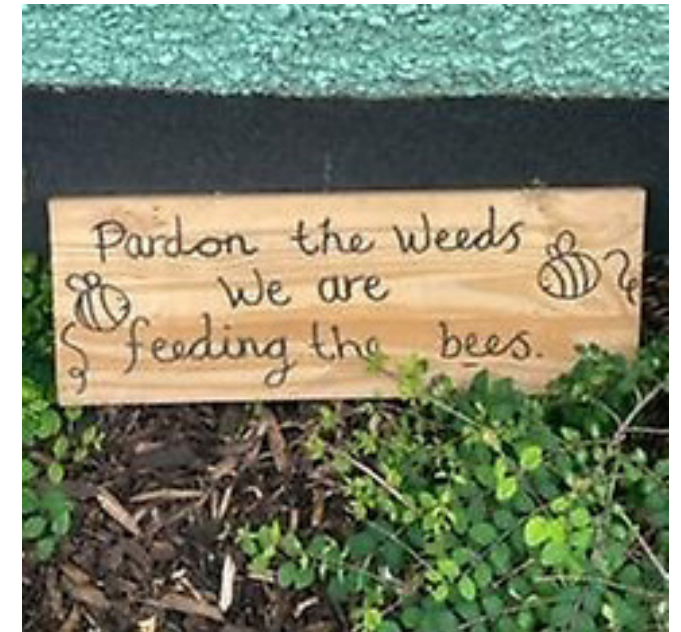 Pardon the Weeds
We are
feeding the bees.